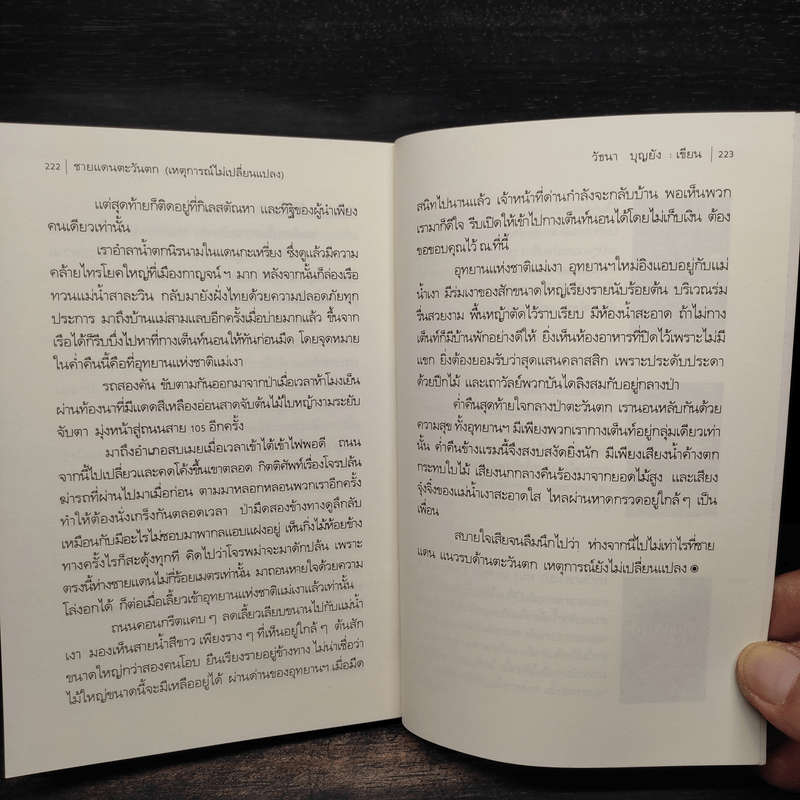 222 | ชายแดนตะวันตก (เหตุการณ์ไม่เปลี่ยนแปลง)
แต่สุดท้ายก็ติดอยู่ที่กิเลสตัณหา และทิฐิของผู้นำเพียง
คนเดียวเท่านั้น
เราอำลาน้ำตกนิรนามในแดนกะเหรี่ยง ซึ่งดูแล้วมีความ
คล้ายไทรโยคใหญ่ที่เมืองกาญจน์ฯ มาก หลังจากนั้นก็ล่องเรือ
ทวนแม่น้ำสาละวิน กลับมายังฝั่งไทยด้วยความปลอดภัยทุก
ประการ มาถึงบ้านแม่สามแลบอีกครั้งเมื่อบ่ายมากแล้ว ขึ้นจาก
เรือได้ก็รีบบึ่งไปหาที่กางเต็นท์นอนให้ทันก่อนมืด โดยจุดหมาย
ในค่ำคืนนี้คือที่อุทยานแห่งชาติแม่เงา
รถสองคัน ขับตามกันออกมาจากป่าเมื่อเวลาห้าโมงเย็น
ผ่านท้องนาที่มีแดดสีเหลืองอ่อนสาดจับต้นไม้ใบหญ้างามระยับ
จับตา มุ่งหน้าสู่ถนนสาย 105 อีกครั้ง
มาถึงอำเภอสบเมยเมื่อเวลาเข้าไต้เข้าไฟพอดี ถนน
จากนี้ไปเปลี่ยวและคดโค้งขึ้นเขาตลอด กิตติศัพท์เรื่องโจรปล้น
ฆ่ารถที่ผ่านไปมาเมื่อก่อน ตามมาหลอกหลอนพวกเราอีกครั้ง
ทำให้ต้องนั่งเกร็งกันตลอดเวลา ป่ามืดสองข้างทางดูลึกลับ
เหมือนกับมีอะไรไม่ชอบมาพากลแอบแฝงอยู่ เห็นกิ่งไม้ห้อยข้าง
ทางครั้งไรก็สะดุ้งทุกที คิดไปว่าโจรพม่าจะมาดักปล้น เพราะ
ตรงนี้ห่างชายแดนไม่กี่ร้อยเมตรเท่านั้น มาถอนหายใจด้วยความ
โล่งอกได้ ก็ต่อเมื่อเลี้ยวเข้าอุทยานแห่งชาติแม่เงาแล้วเท่านั้น
ถนนคอนกรีตแคบๆ ลดเลี้ยวเลียบขนานไปกับแม่น้ำ
เงา มองเห็นสายน้ำสีขาว เพียงรางๆ ที่เห็นอยู่ใกล้ๆ ต้นสัก
ขนาดใหญ่กว่าสองคนโอบ ยืนเรียงรายอยู่ข้างทาง ไม่น่าเชื่อว่า
ไม้ใหญ่ขนาดนี้จะมีเหลืออยู่ได้ ผ่านด่านของอุทยานฯ เมื่อมืด
วัธนา บุญยัง : เขียน | 223
สนิทไปนานแล้ว เจ้าหน้าที่ด่านกำลังจะกลับบ้าน พอเห็นพวก
เรามาก็ดีใจ รีบเปิดให้เข้าไปกางเต็นท์นอนได้โดยไม่เก็บเงิน ต้อง
ขอขอบคุณไว้ ณ.ที่นี้
อุทยานแห่งชาติแม่เงา อุทยานฯใหม่อิงแอบอยู่กับแม่
น้ำเงา มีร่มเงาของสักขนาดใหญ่เรียงรายนับร้อยต้น บริเวณร่ม
รื่นสวยงาม พื้นหญ้าตัดไว้ราบเรียบ มีห้องน้ำสะอาด ถ้าไม่กาง
เต็นท์ก็มีบ้านพักอย่างดีให้ ยิ่งเห็นห้องอาหารที่ปิดไว้เพราะไม่มี
แขก ยิ่งต้องยอมรับว่าสุดแสนคลาสสิก เพราะประดับประดา
ด้วยปีกไม้ และเถาวัลย์พวกบันไดลิงสมกับอยู่กลางป่า
ค่ำคืนสุดท้ายใจกลางป่าตะวันตก เรานอนหลับกันด้วย
ความสุข ทั้งอุทยานฯ มีเพียงพวกเรากางเต็นท์อยู่กลุ่มเดียวเท่า
นั้น ค่ำคืนข้างแรมนี้จึงสงบสงัดยิ่งนัก มีเพียงเสียงน้ำค้างตก
กระทบใบไม้ เสียงนกกลางคืนร้องมาจากยอดไม้สูง และเสียง
จุ๋งจิ๋งของแม่น้ำเงาสะอาดใส ไหลผ่านหาดกรวดอยู่ใกล้ๆ เป็น
เพื่อน
สบายใจเสียจนลืมนึกไปว่า ห่างจากนี้ไปไม่เท่าไรที่ชาย
แดน แนวรบด้านตะวันตก เหตุการณ์ยังไม่เปลี่ยนแปลง ◉